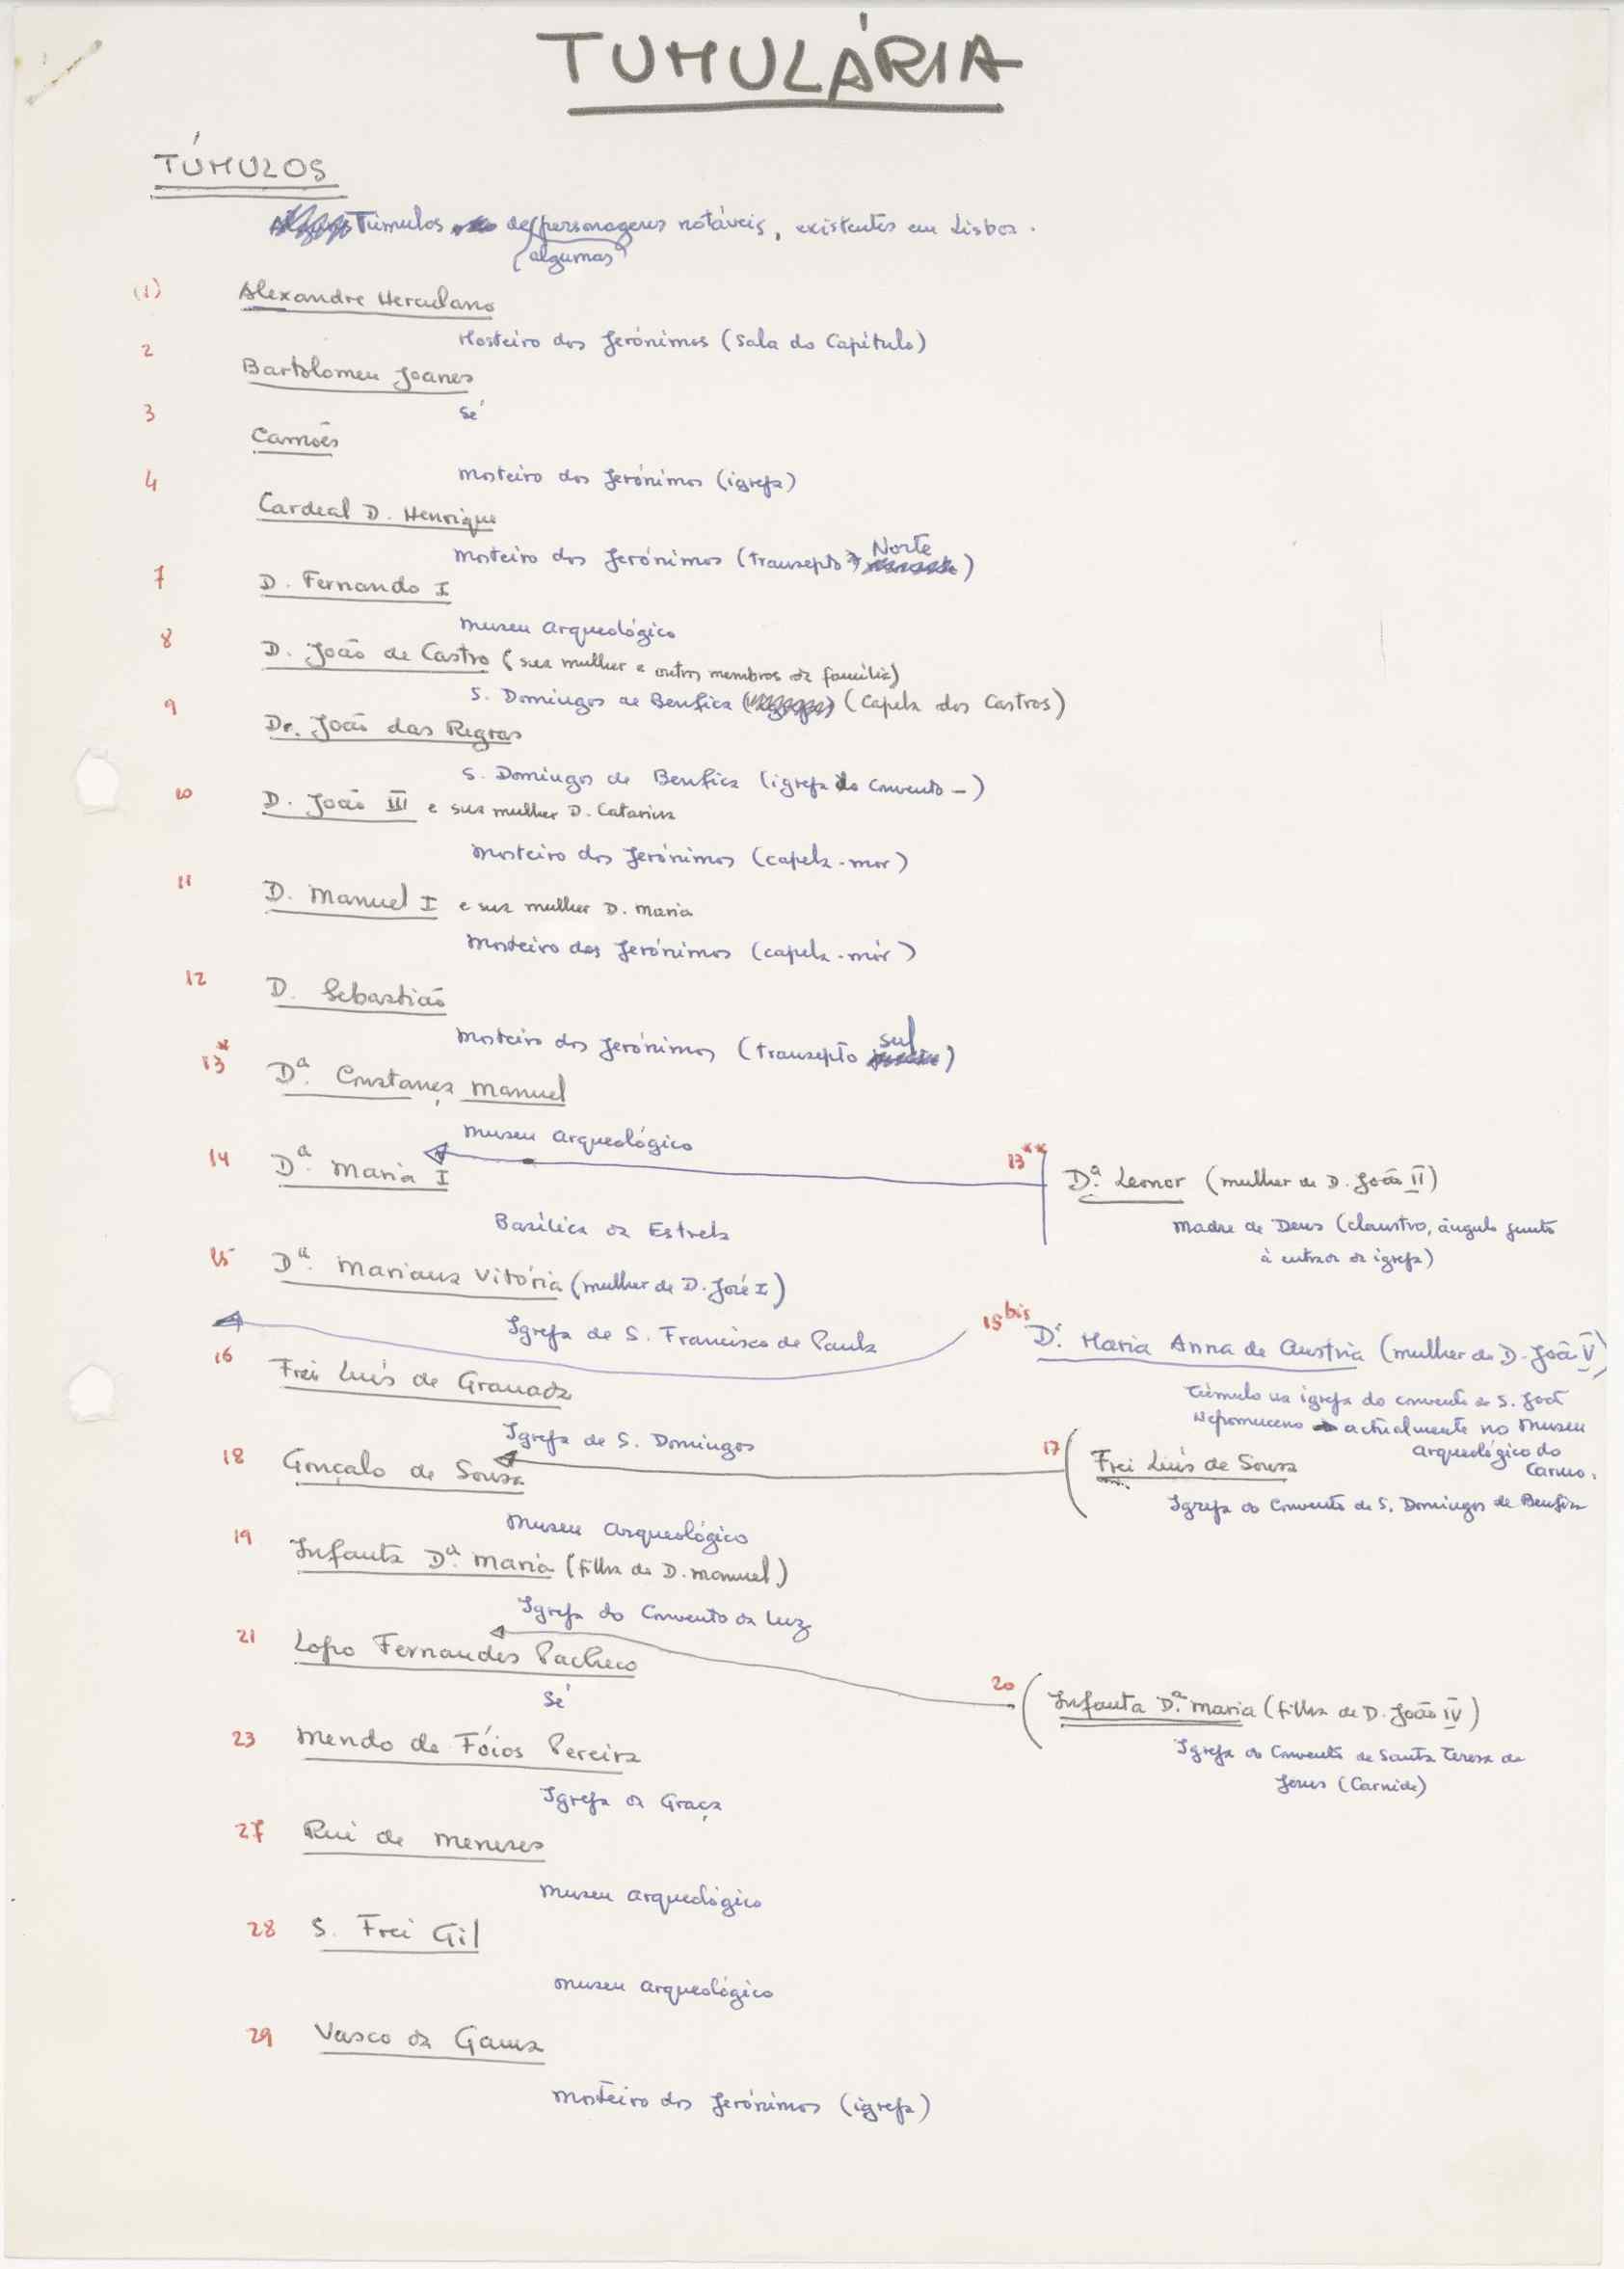 TUMULÁRIA
TÚMULOS
Túmulos de personagens notáveis, existentes em Lisboa.
algumas
(1)
Alexandre Herculano
Mosteiro dos Jerónimos (Sala do Capítulo)
2
Bartolomeu Joanes
Sé
3
Camões
Mosteiro dos Jerónimos (igreja)
4
Cardeal D. Henrique
Norte
Mosteiro dos Jerónimos (transepto)
7
D. Fernando I
Museu Arqueológico
8
D. João de Castro (sua mulher e outros membros da família)
S. Domingos de Benfica (Capela dos Castros)
9
Dr. João das Regras
S. Domingos de Benfica (igreja do Convento -)
10
D. João III e sua mulher D. Catarina
Mosteiro dos Jerónimos (capela-mor)
11
D. Manuel I e sua mulher D. Maria
Mosteiro dos Jerónimos (capela-mór)
12
D. Sebastião
sul
Mosteiro dos Jerónimos (transepto)
13*
Dª. Constança Manuel
Museu Arqueológico
13**
Dª. Leonor (mulher de D. João II)
Madre de Deus (claustro, ângulo junto
à entrada da igreja)
14
Dª. Maria I
Basílica da Estrela
15
Dª. Mariana Vitória (mulher de D. José I)
Igreja de S. Francisco de Paula
15 bis
Dª. Maria Anna de Austria (mulher de D. João V)
Túmulo na igreja do convento de S. João
Nepomuceno actualmente no Museu
Arqueológico do
Carmo.
16
Frei Luís de Granada
Igreja de S. Domingos
17
Frei Luís de Sousa
Igreja do Convento de S. Domingos de Benfica
18
Gonçalo de Sousa
Museu Arqueológico
19
Infanta Dª. Maria (filha de D. Manuel)
Igreja do Convento da Luz
20
Infanta Dª. Maria (filha de D. João IV)
Igreja do Convento de Santa Teresa de
Jesus (Carnide)
21
Lopo Fernandes Pacheco
Sé
23
Mendo de Fóios Pereira
Igreja da Graça
27
Rui de Meneses
Museu Arqueológico
28
S. Frei Gil
Museu Arqueológico
29
Vasco da Gama
Mosteiro dos Jerónimos (igreja)